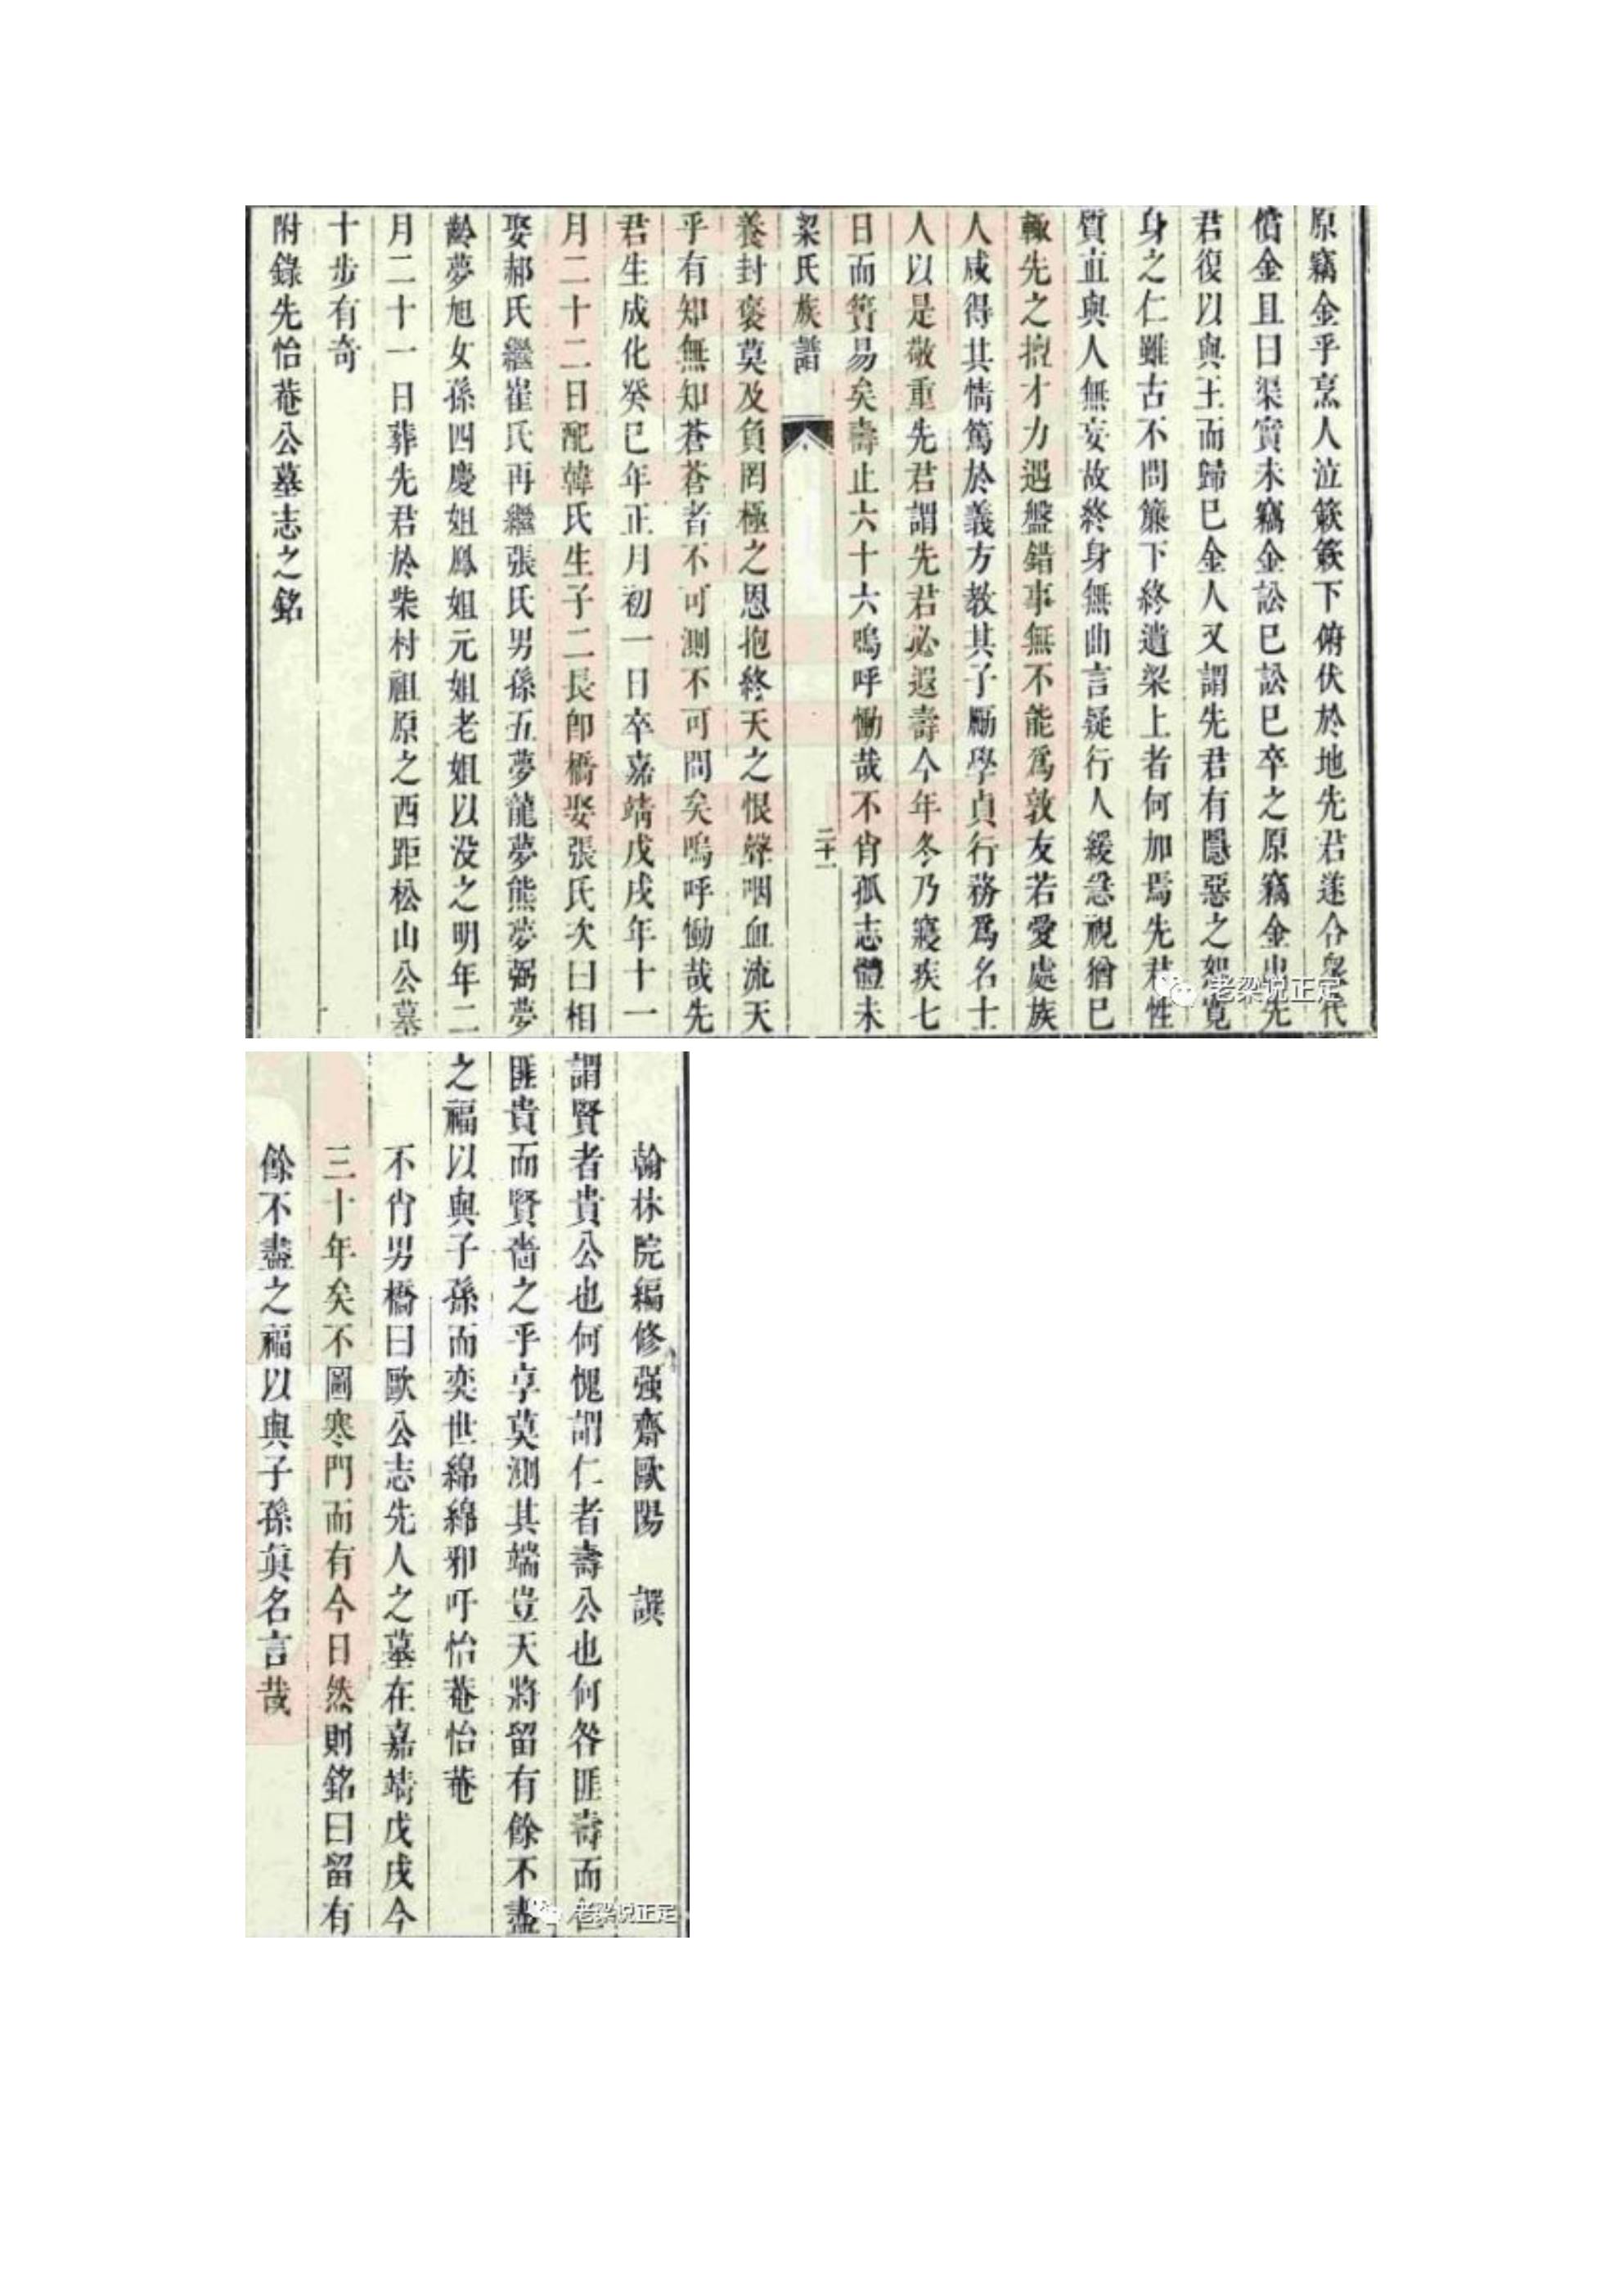 原竊金乎烹人泣簌簌下俯伏於地先君遂合衆代
償金且曰渠實未竊金訟巳訟巳卒之原竊金出先
君復以與王而歸巳金人又謂先君有隱惡之恕寬
身之仁雖古不問簾下終遺梁上者何加焉先君性
質直與人無妄故終身無曲言疑行人緩急視猶巳
輙先之擅才力遇盤錯事無不能爲敦友若愛處族
人咸得其情篤於義方教其子勵學貞行務爲名士
人以是敬重先君謂先君必遐壽今年冬乃寢疾七
日而簀易矣壽止六十六嗚呼慟哉不肖孤志體未
梁氏族譜
二十一
養封褒莫及負罔極之恩抱終天之恨聲咽血流天
乎有知無知蒼蒼者不可測不可問矣嗚呼慟哉先
君生成化癸巳年正月初一日卒嘉靖戊戌年十一
月二十二日配韓氏生子二長卽橋娶張氏次曰相
娶郝氏繼崔氏再繼張氏男孫五夢龍夢熊夢弼夢
齡夢旭女孫四慶姐鳳姐元姐老姐以没之明年二
月二十一日葬先君於柴村祖原之西距松山公墓
十步有奇
附錄先怡菴公墓志之銘
老梁说正定
翰林院編修强齋歐陽 譔
謂賢者貴公也何愧謂仁者壽公也何咎匪壽而仁
匪貴而賢嗇之乎享莫測其端豈天將留有餘不盡
之福以與子孫而奕世綿綿邪吁怡菴怡菴
不肖男橋曰歐公志先人之墓在嘉靖戊戌今
三十年矣不圖寒門而有今日然則銘曰留有
餘不盡之福以與子孫眞名言哉
老梁说正定